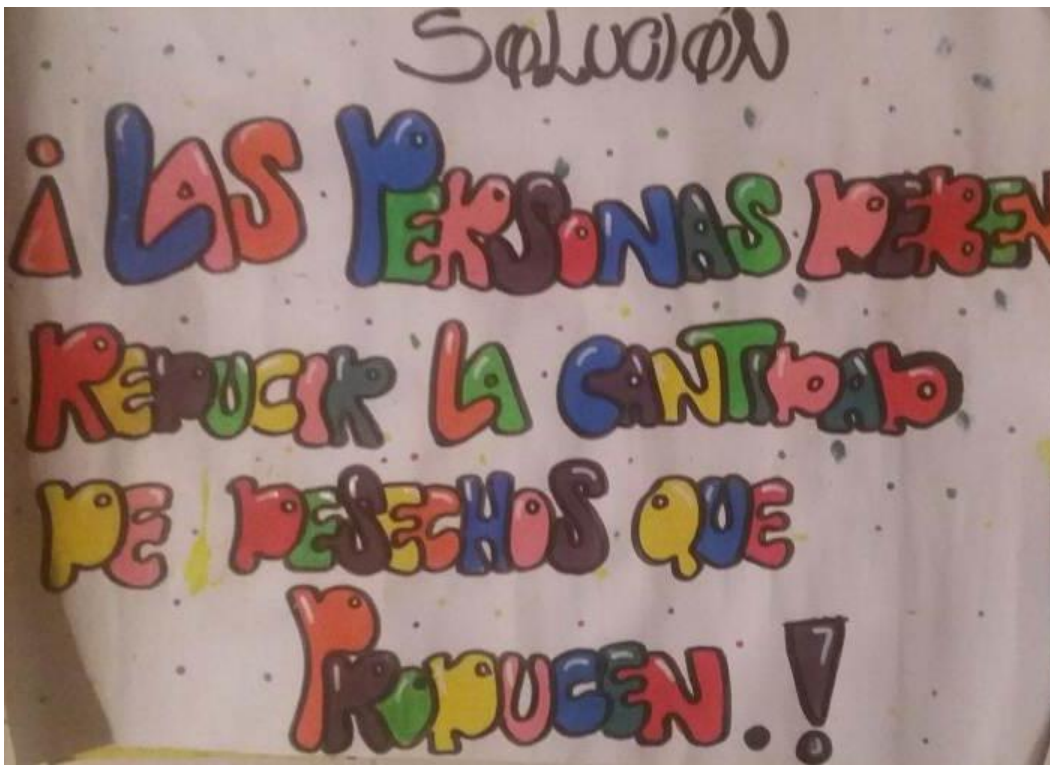 SOLUCIÓN
¡LAS PERSONAS DEBEN
REDUCIR LA CANTIDAD
DE DESECHOS QUE
PRODUCEN.!